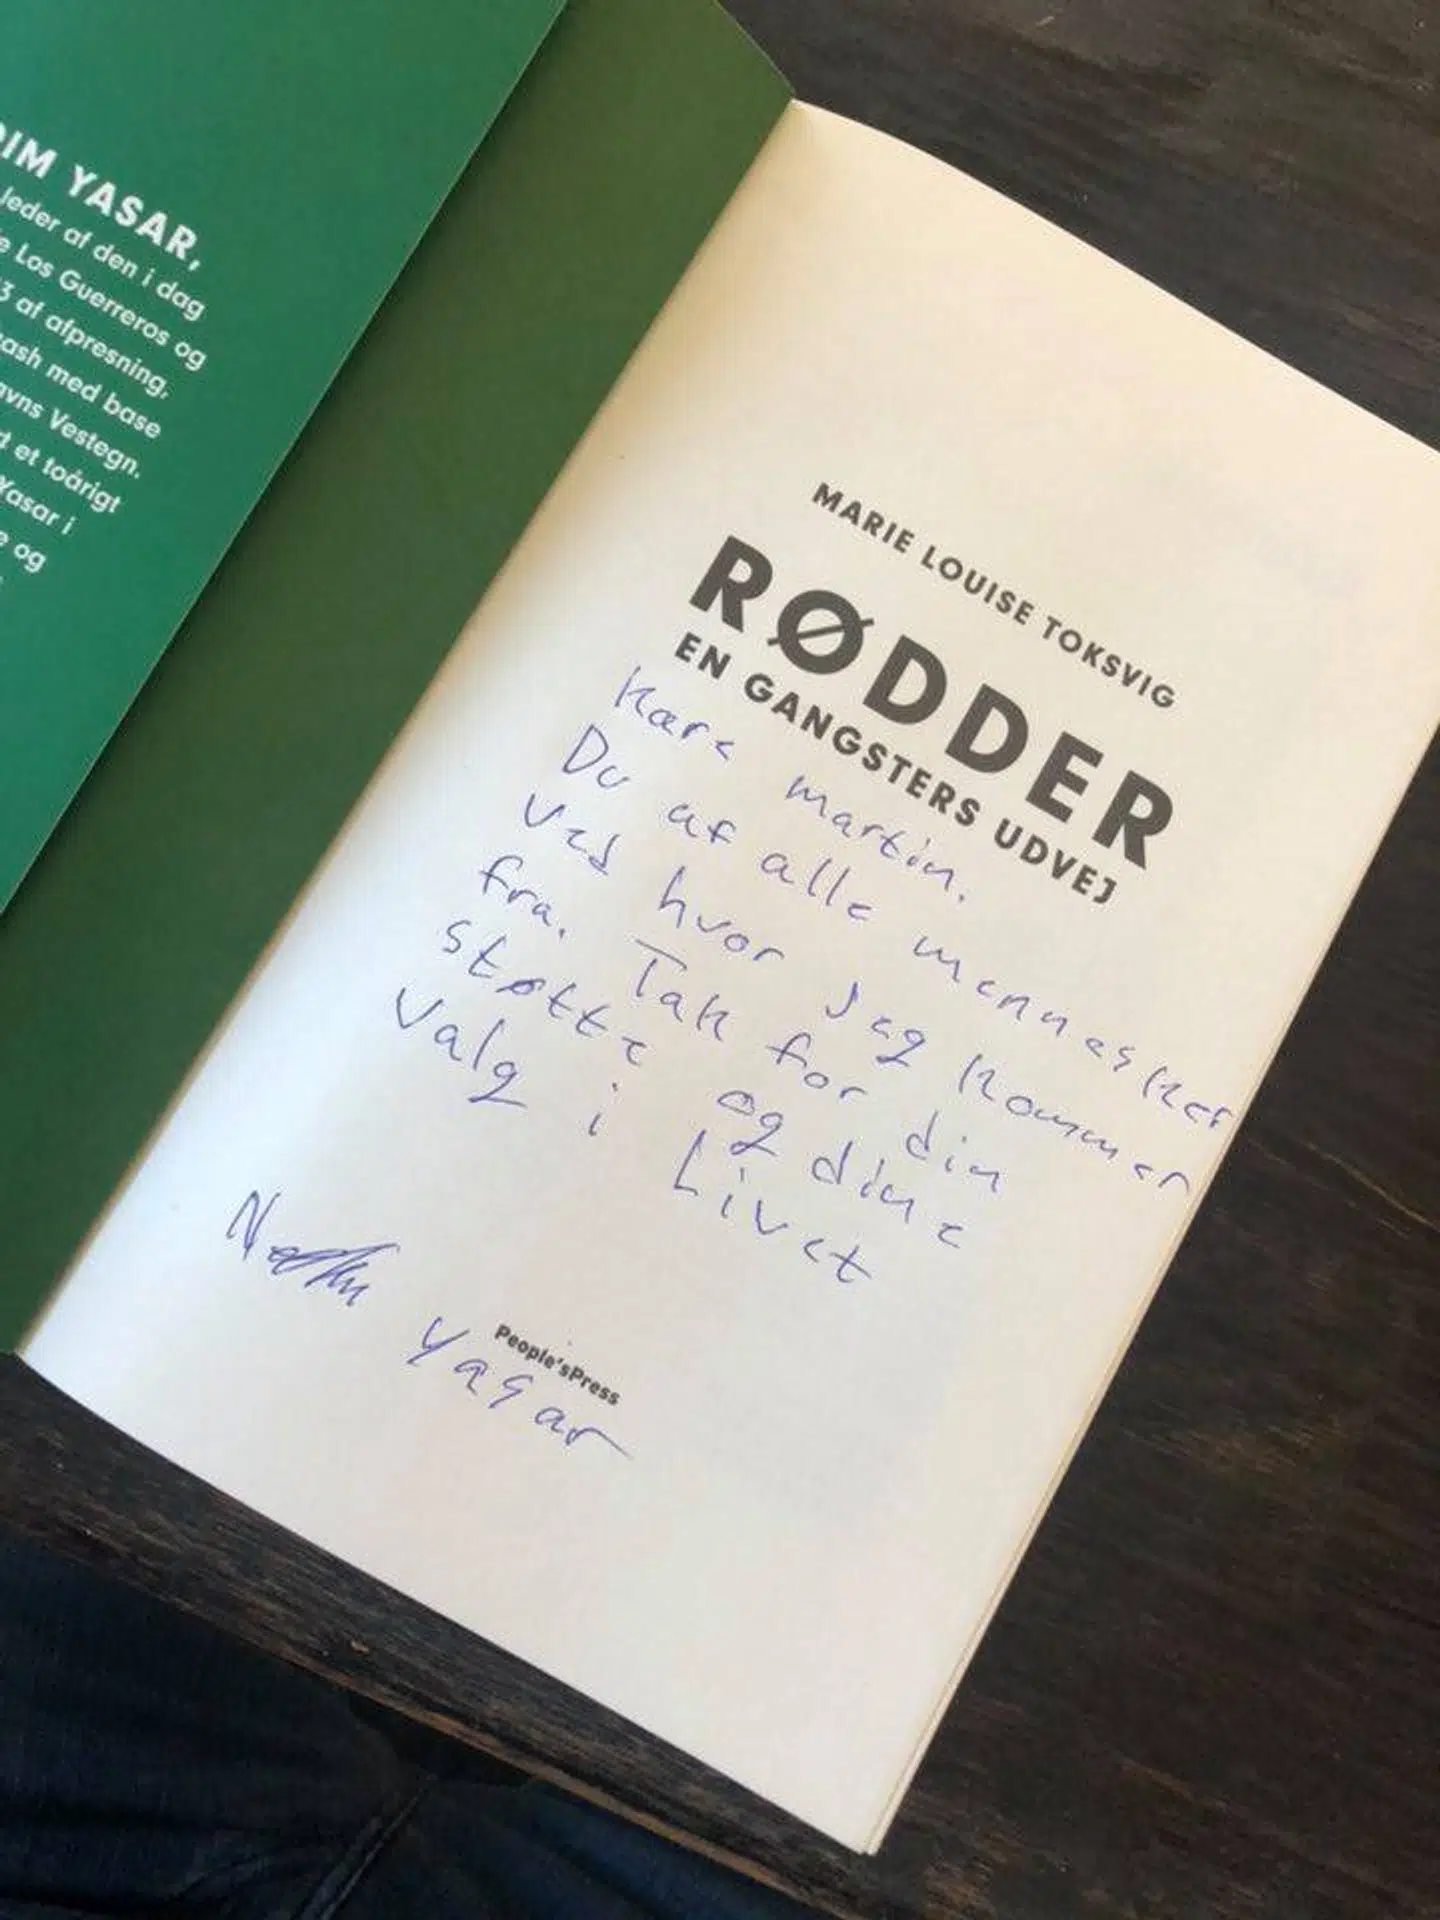 DIM YASAR,
leder af den i dag
e Los Guerreros og
3 af afpresning,
ash med base
avns Vestegn.
d et toårigt
Yasar i
e og
MARIE LOUISE TOKSVIG
RØDDER
EN GANGSTERS UDVEJ
Kære martin.
Du af alle mennesker
ved hvor jeg kommer
fra. Tak for din
støtte og dine
valg i Livet
Nedim Yasar
People'sPress